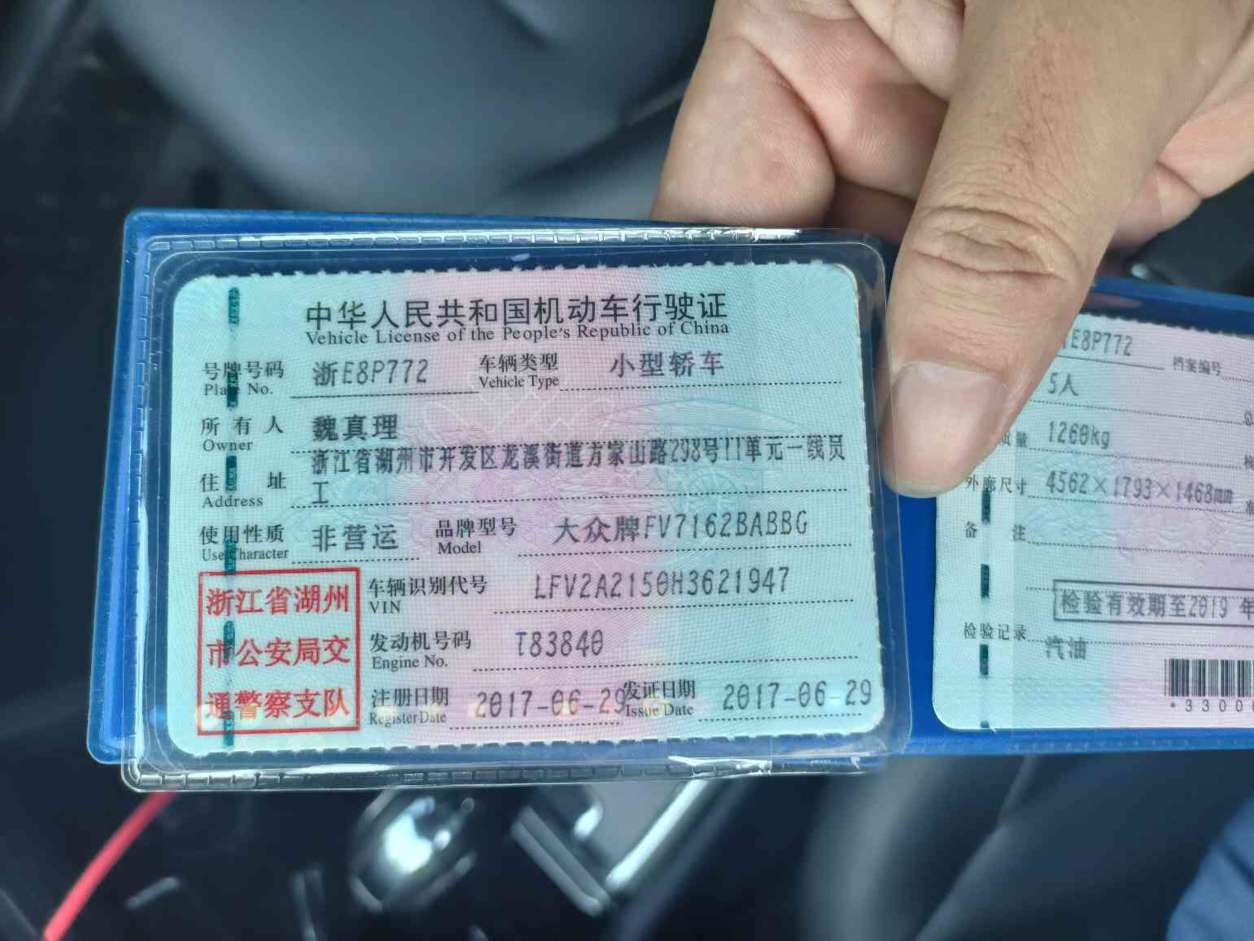 中华人民共和国机动车行驶证
Vehicle License of the People's Republic of China
号牌号码 浙E8P772 车辆类型 小型轿车
Plate No. Vehicle Type
所有人 魏真理
Owner
住址 浙江省湖州市开发区龙溪街道方家山路298号11单元一线员
Address 工
使用性质 非营运 品牌型号 大众牌FV7162BABBG
Use Character Model
浙江省湖州
市公安局交
通警察支队
车辆识别代号 LFV2A2150H3621947
VIN
发动机号码 T83840
Engine No.
注册日期 2017-06-29 发证日期 2017-06-29
Register Date Issue Date
E8P772 档案编号
5人
质量 1260kg
外廓尺寸 4562×1793×1468mm
备注
检验有效期至2019 年
检验记录
汽油
*3300